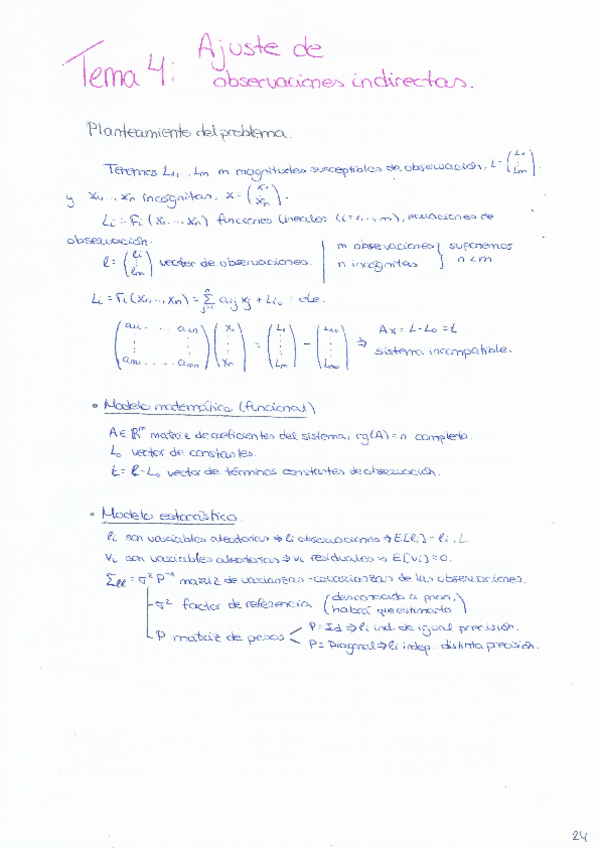 Tema 4: Ajuste de
observaciones indirectas.
Planteamiento del problema.
Tenemos L₁,..., Lm m magnitudes susceptibles de observación, L = (L₁ ⋮ Lm).
y x₁,..., xn incógnitas, x = (x₁ ⋮ xn).
Li = Fi(x₁,..., xn) funciones lineales (i=1,...,m), ecuaciones de
observación.
l = (l₁ ⋮ lm) vector de observaciones. | m observaciones
n incógnitas } suponemos
n < m
Li = Fi(x₁,..., xn) = Σ aij xj + Lio : cte.
(a11 ..... a1n ⋮ ⋮ am1 ..... amn) (x₁ ⋮ xn) = (L₁ ⋮ Lm) - (L10 ⋮ Lm0) ⇒ Ax = L - L₀ = t
sistema incompatible.
• Modelo matemático (funcional)
A ∈ ℝᵐ matriz de coeficientes del sistema, rg(A) = n completo.
L₀ vector de constantes.
t = l - L₀ vector de términos constantes de observación.
• Modelo estocástico.
li son variables aleatorias ⇒ li observaciones ⇒ E[li] = li
vi son variables aleatorias ⇒ vi residuales ⇒ E[vi] = 0.
Σll = σ² P⁻¹ matriz de varianzas-covarianzas de las observaciones.
σ² factor de referencia (desconocido a priori,
habrá que estimarlo)
P matriz de pesos < P = Id ⇒ li ind. de igual precisión.
P = Diagonal ⇒ li indep. distinta precisión.
24